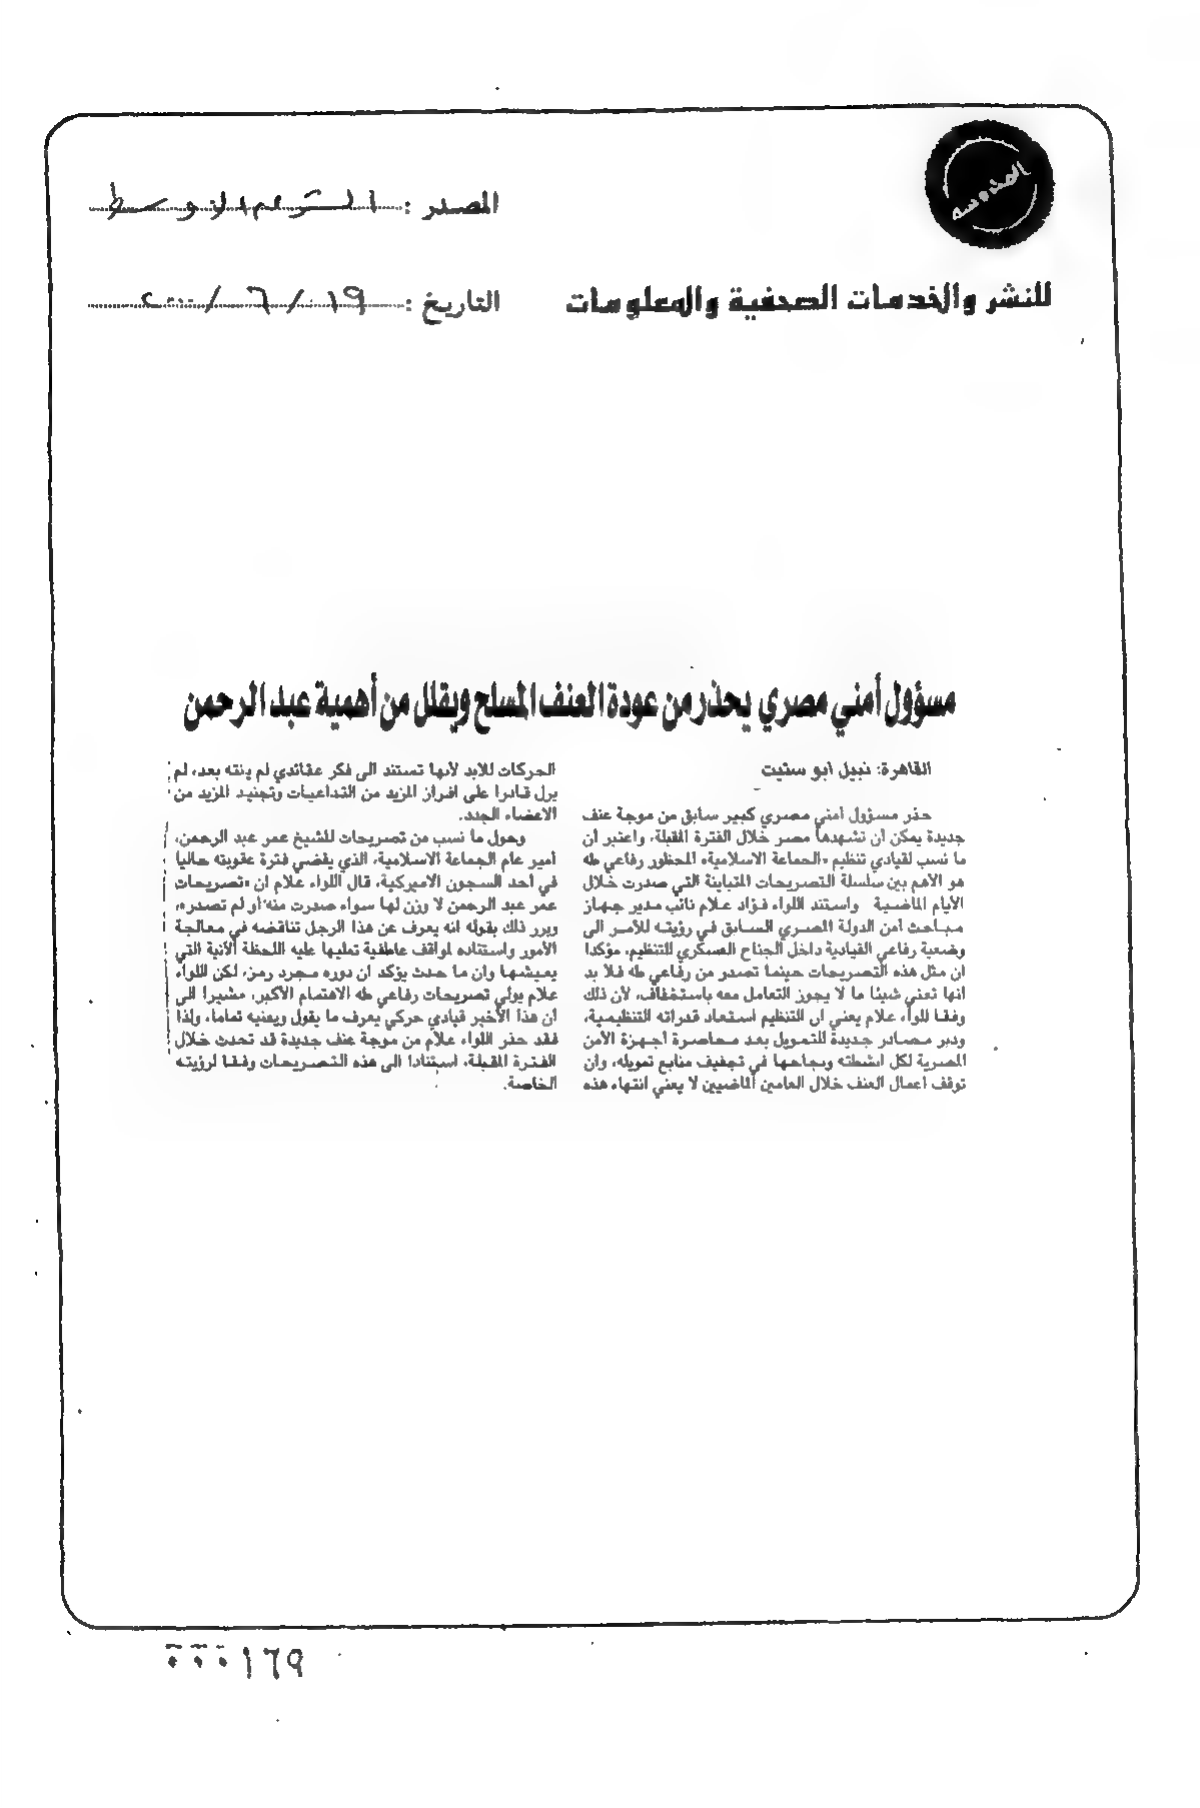 المصدر : الشرق الاوسط
للنشر والخدمات الصحفية والمعلومات
التاريخ : ١٩ / ٦ / ٢٠٠٠
مسؤول أمني مصري يحذر من عودة العنف المسلح ويقلل من أهمية عبد الرحمن
القاهرة: نبيل ابو ستيت
حذر مسؤول أمني مصري كبير سابق من موجة عنف
جديدة يمكن أن تشهدها مصر خلال الفترة المقبلة، واعتبر أن
ما نسب لقيادي تنظيم «الجماعة الاسلامية» المحظور رفاعي طه
هو الأهم بين سلسلة التصريحات المتباينة التي صدرت خلال
الأيام الماضية واستند اللواء فؤاد علام نائب مدير جهاز
مباحث أمن الدولة المصري السابق في رؤيته للأمر الى
وضعية رفاعي القيادية داخل الجناح العسكري للتنظيم، مؤكدا
ان مثل هذه التصريحات حينما تصدر من رفاعي طه فلا بد
انها تعني شيئا ما لا يجوز التعامل معه باستخفاف، لأن ذلك
وفقا للواء علام يعني ان التنظيم استعاد قدراته التنظيمية،
ودبر مصادر جديدة للتمويل بعد محاصرة أجهزة الأمن
المصرية لكل انشطته ونجاحها في تجفيف منابع تمويله، وان
توقف اعمال العنف خلال العامين الماضيين لا يعني انتهاء هذه
الحركات للأبد لأنها تستند الى فكر عقائدي لم ينته بعد، لم
يزل قادرا على افراز المزيد من التداعيات وتجنيد المزيد من
الاعضاء الجدد.
وحول ما نسب من تصريحات للشيخ عمر عبد الرحمن،
أمير عام الجماعة الاسلامية، الذي يقضي فترة عقوبته حاليا
في أحد السجون الاميركية، قال اللواء علام ان «تصريحات
عمر عبد الرحمن لا وزن لها سواء صدرت منه أو لم تصدر»،
وبرر ذلك بقوله انه يعرف عن هذا الرجل تناقضه في معالجة
الأمور واستناده لمواقف عاطفية تمليها عليه اللحظة الآنية التي
يعيشها وان ما حدث يؤكد ان دوره مجرد رمز، لكن اللواء
علام يولي تصريحات رفاعي طه الاهتمام الأكبر، مشيرا الى
أن هذا الأخير قيادي حركي يعرف ما يقول ويعنيه تماما، ولذا
فقد حذر اللواء علام من موجة عنف جديدة قد تحدث خلال
الفترة المقبلة، استنادا الى هذه التصريحات وفقا لرؤيته
الخاصة.
٠٠٠١٦٩